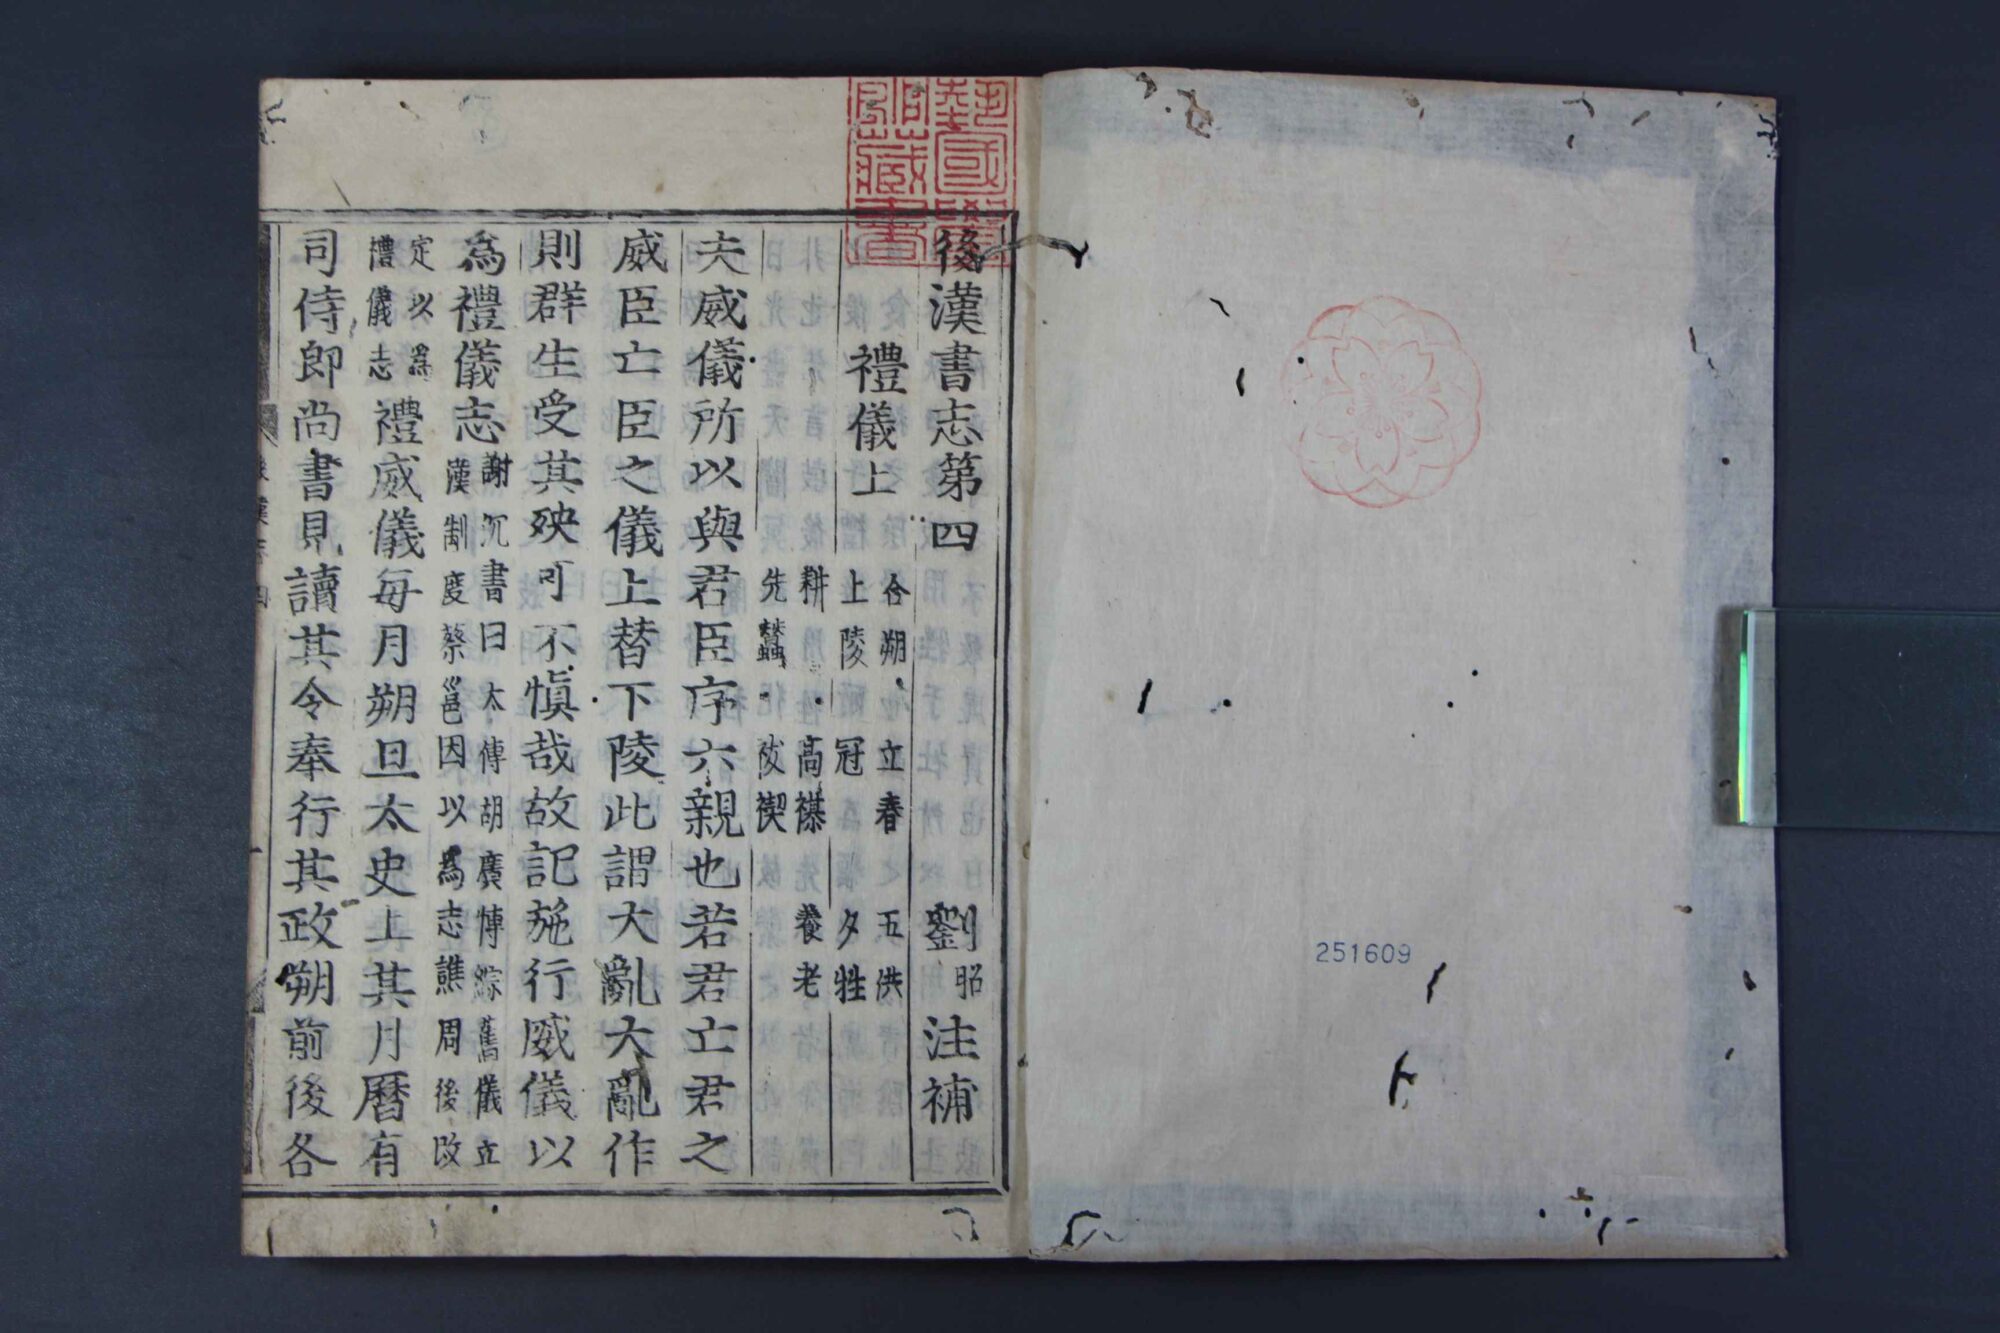 251609
後漢書志第四 劉昭注補
禮儀上 合朔 立春 五洪
上陵 冠 夕牲
耕 高禖 養老
先蠶 祓禊
夫威儀所以與君臣序六親也若君亡君之
威臣亡臣之儀上替下陵此謂大亂大亂作
則群生受其殃可不慎哉故記施行威儀以
為禮儀志 謝沉書曰太傅胡廣慱綜舊儀立
漢制度蔡邕因以為志譙周後改
定以為
禮儀志 禮威儀每月朔旦太史上其月曆有
司侍郎尚書見讀其令奉行其政朔前後各
藏書